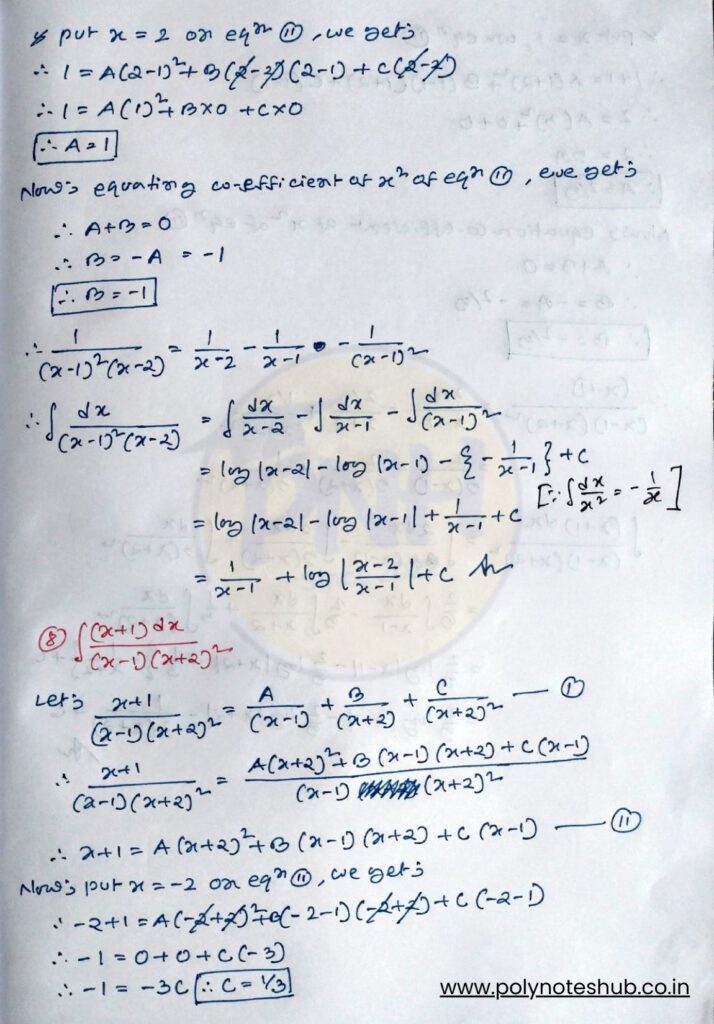 & put x = 2 on eqⁿ ⑪, we get;
∴ 1 = A(2-1)² + B(2-2)(2-1) + C(2-2)
∴ 1 = A(1)² + B×0 + C×0
∴ A = 1
Now; equating co-efficient of x² of eqⁿ ⑪, we get;
∴ A+B = 0
∴ B = -A = -1
∴ B = -1
∴ 1/((x-1)²(x-2)) = 1/(x-2) - 1/(x-1) - 1/(x-1)²
∴ ∫ dx/((x-1)²(x-2)) = ∫ dx/(x-2) - ∫ dx/(x-1) - ∫ dx/(x-1)²
= log |x-2| - log |x-1) - {- 1/(x-1)} + C
[∵ ∫ dx/x² = - 1/x]
= log |x-2| - log |x-1| + 1/(x-1) + C
= 1/(x-1) + log |(x-2)/(x-1)| + C
⑧ ∫ (x+1) dx/((x-1)(x+2)²)
Let; (x+1)/((x-1)(x+2)²) = A/(x-1) + B/(x+2) + C/(x+2)² — ①
∴ (x+1)/((x-1)(x+2)²) = (A(x+2)² + B(x-1)(x+2) + C(x-1))/((x-1)(x+2)²)
∴ x+1 = A(x+2)² + B(x-1)(x+2) + C(x-1) — ⑪
Now; put x = -2 on eqⁿ ⑪, we get;
∴ -2+1 = A(-2+2)² + B(-2-1)(-2+2) + C(-2-1)
∴ -1 = 0 + 0 + C(-3)
∴ -1 = -3C ∴ C = 1/3
PNH
www.polynoteshub.co.in